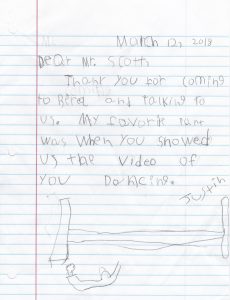 March 12, 2018
Dear Mr. Scott,
Thank you for coming
to and talking to
us. My favorite
was when you showed
us the video of
you
Justin